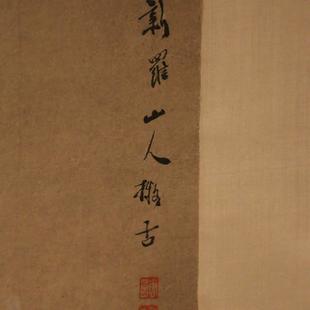 新羅山人古